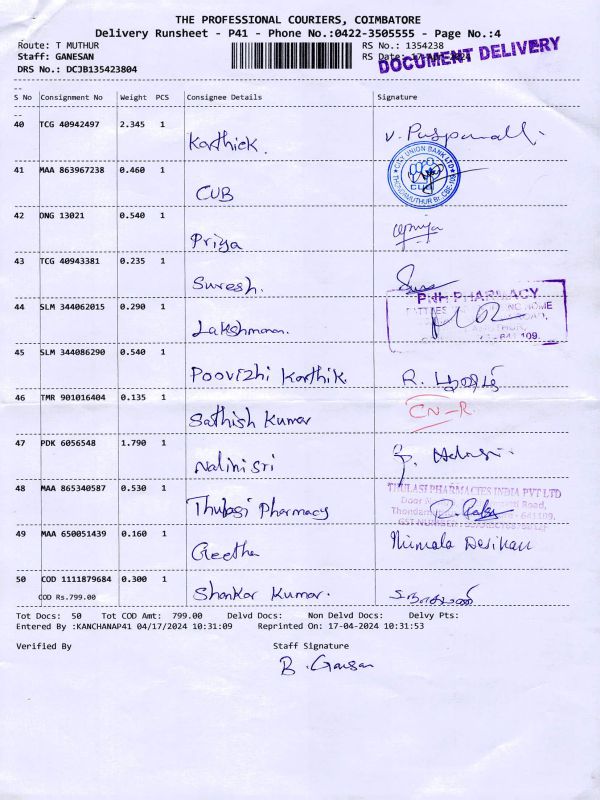 THE PROFESSIONAL COURIERS, COIMBATORE
Delivery Runsheet - P41 - Phone No.:0422-3505555 - Page No.:4
Route: T MUTHUR RS No.: 1354238
Staff: GANESAN RS Date:
DOCUMENT DELIVERY
DRS No.: DCJB135423804
S No Consignment No Weight PCS Consignee Details Signature
40 TCG 40942497 2.345 1 Karthick.
41 MAA 863967238 0.460 1 CUB
CITY UNION BANK LTD
THONDAMUTHUR Br.
42 DNG 13021 0.540 1 Priya
43 TCG 40943381 0.235 1 Suresh.
44 SLM 344062015 0.290 1 Lakshmanan.
PNH PHARMACY
45 SLM 344086290 0.540 1 Poovizhi Karthik.
46 TMR 901016404 0.135 1 Sathish Kumar CN-R.
47 PDK 6056548 1.790 1 Nalini sri
48 MAA 865340587 0.530 1 Thulasi Pharmacy
THULASI PHARMACIES INDIA PVT LTD
49 MAA 650051439 0.160 1 Geetha Nirmala Desikan
50 COD 1111879684 0.300 1 Shankar Kumar.
COD Rs.799.00
Tot Docs: 50 Tot COD Amt: 799.00 Delvd Docs: Non Delvd Docs: Delvy Pts:
Entered By :KANCHANAP41 04/17/2024 10:31:09 Reprinted On: 17-04-2024 10:31:53
Verified By Staff Signature